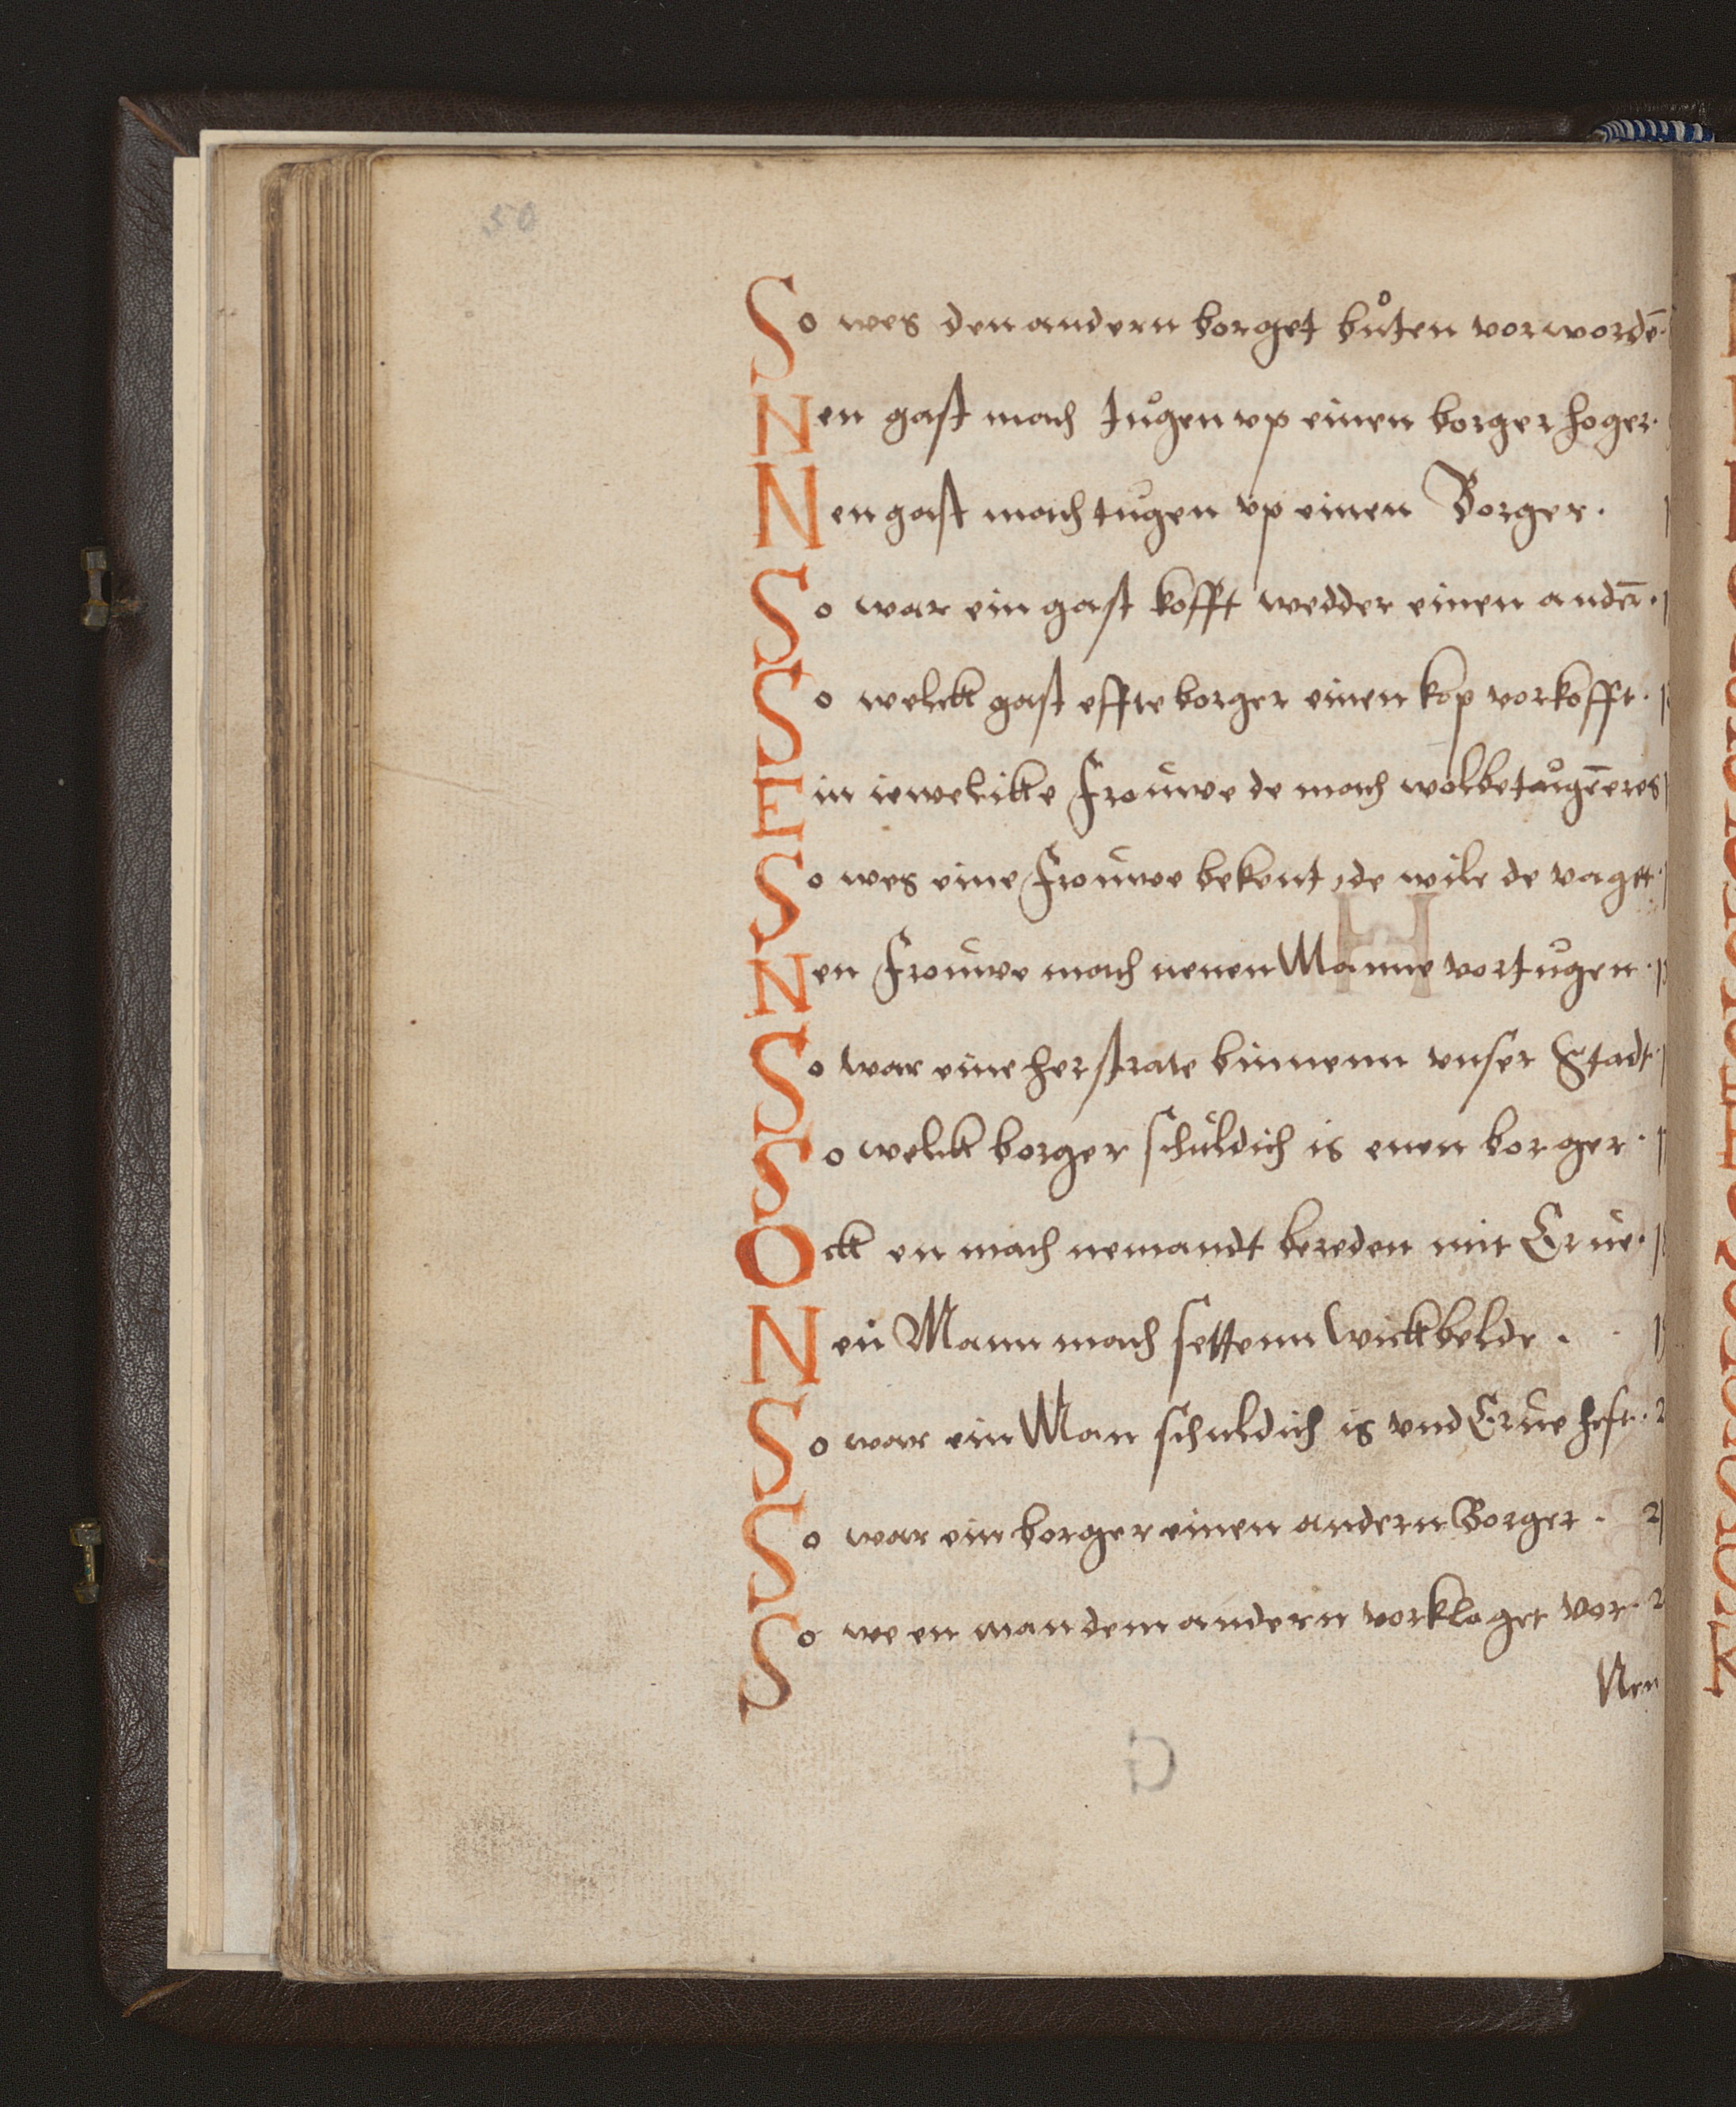 50
So wes den andern borget bůten vorwordē.
Nen gast mach tůgen vp einen borger hoger.
Nen gast mach tůgen vp einen Borger.
So war ein gast kofft wedder einen ander̄.
So welck gast effte borger einen kop vorkofft.
Ein iewelikke Frouwe de mach wol betůgēeres
So wes eine Frouwe bekent, de wile de vagtt.
Nen Frouwe mach nenen Manne vortůgen.
So war eine herstrate binnenn vnser Stadt.
So welck borger schuldich is enen borger.
Ock en mach nemandt bereden mit Erue.
Nen Mann mach settenn Wickbelde.
So war ein Man schuldich is vnd Erue heft. 2
So war ein borger einen andern Borger. 21
So we en man dem andern vorklaget vor. 2
Nen